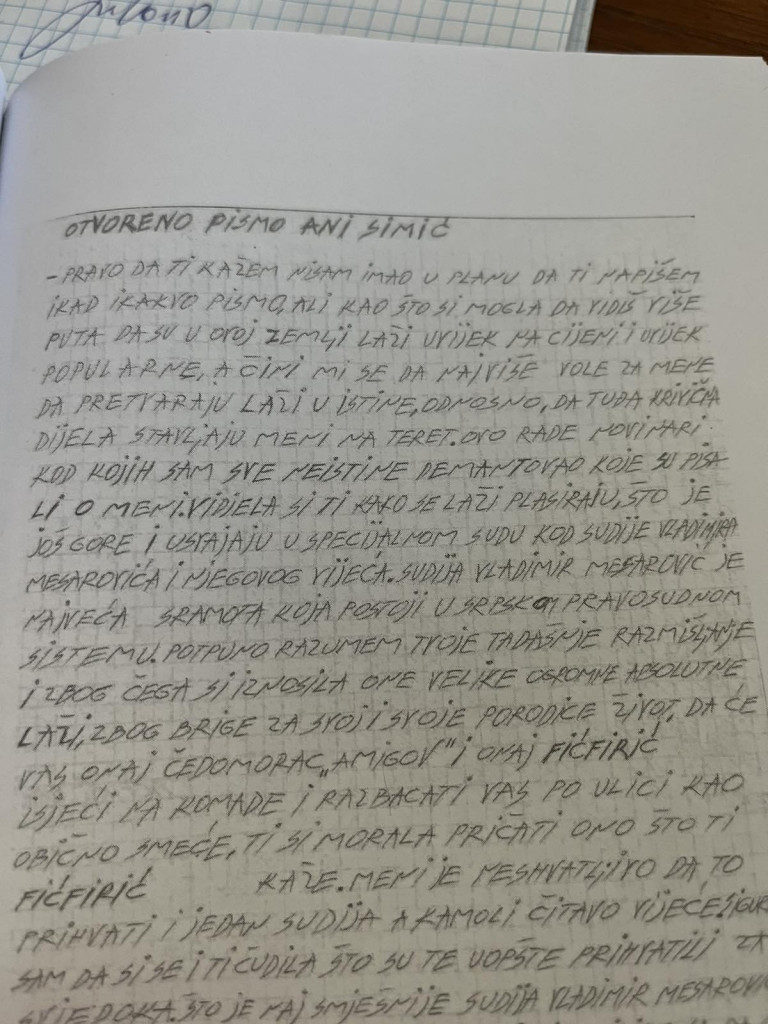 OTVORENO PISMO ANI SIMIĆ
-PRAVO DA TI KAŽEM NISAM IMAO U PLANU DA TI NAPIŠEM
IKAD IKAKVO PISMO, ALI KAO ŠTO SI MOGLA DA VIDIŠ VIŠE
PUTA DA SU U OVOJ ZEMLJI LAŽI UVIJEK NA CIJENI I UVIJEK
POPULARNE, A ČINI MI SE DA NAJVIŠE VOLE ZA MENE
DA PRETVARAJU LAŽI U ISTINE, ODNOSNO, DA TUĐA KRIVIČNA
DIJELA STAVLJAJU MENI NA TERET. OVO RADE NOVINARI
KOD KOJIH SAM SVE NEISTINE DEMANTOVAO KOJE SU PISA
LI O MENI. VIDJELA SI TI KAKO SE LAŽI PLASIRAJU, ŠTO JE
JOŠ GORE I USVAJAJU U SPECIJALNOM SUDU KOD SUDIJE VLADIMIRA
MESAROVIĆA I NJEGOVOG VIJEĆA. SUDIJA VLADIMIR MESAROVIĆ JE
NAJVEĆA SRAMOTA KOJA POSTOJI U SRPSKOM PRAVOSUDNOM
SISTEMU. POTPUNO RAZUMEM TVOJE TADAŠNJE RAZMIŠLJANJE
I ZBOG ČEGA SI IZNOSILA ONE VELIKE OGROMNE APSOLUTNE
LAŽI, ZBOG BRIGE ZA SVOJ I SVOJE PORODICE ŽIVOT, DA ĆE
VAS ONAJ ČEDOMORAC "AMIGOV" I ONAJ FIĆFIRIĆ
ISJEĆI NA KOMADE I RAZBACATI VAS PO ULICI KAO
OBIČNO SMEĆE, TI SI MORALA PRIČATI ONO ŠTO TI
FIĆFIRIĆ KAŽE. MENI JE NESHVATLJIVO DA TO
PRIHVATI I JEDAN SUDIJA A KAMOLI ČITAVO VIJEĆE. SIGUR
SAM DA SI SE I TI ČUDILA ŠTO SU TE UOPŠTE PRIHVATILI ZA
SVJEDOKA. ŠTO JE NAJ SMJEŠNIJE SUDIJA VLADIMIR MESAROVIĆ